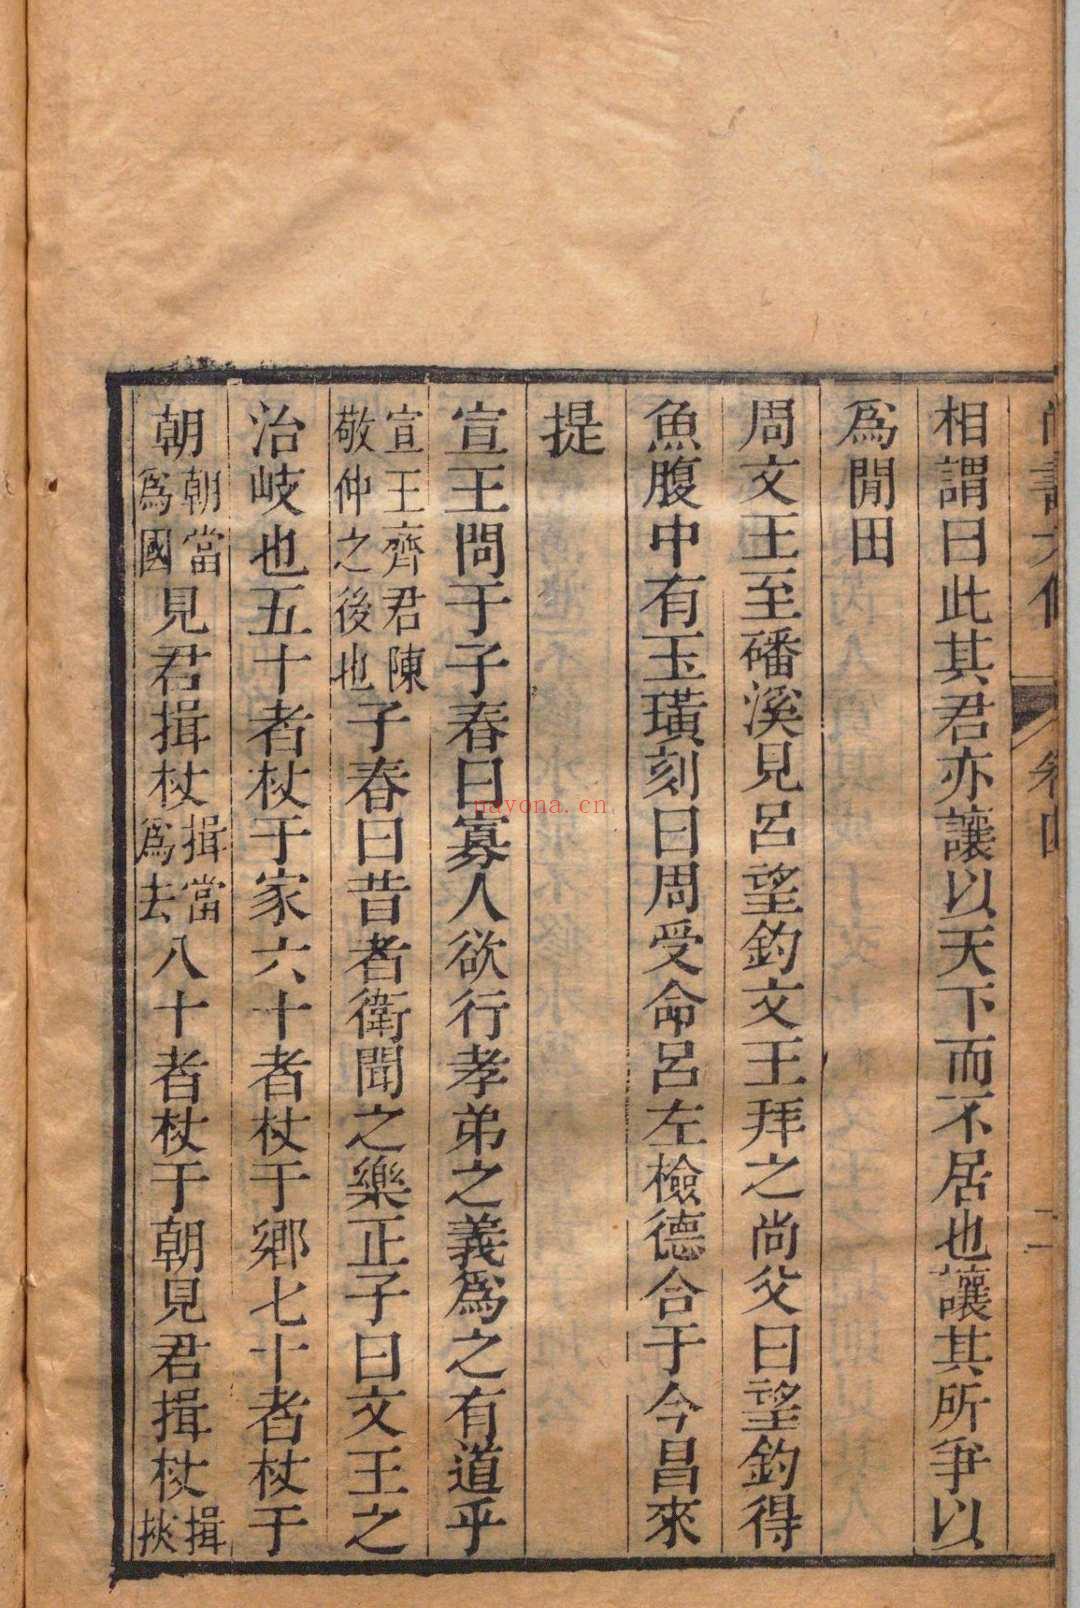 相謂曰此其君亦讓以天下而不居也讓其所爭以
爲閒田
周文王至磻溪見呂望釣文王拜之尚父曰望釣得
魚腹中有玉璜刻曰周受命呂左檢德合于今昌來
提
宣王問于子春曰寡人欲行孝弟之義爲之有道乎
宣王齊君陳敬仲之後也子春曰昔者衛聞之樂正子曰文王之
治岐也五十者杖于家六十者杖于鄉七十者杖于
朝朝當爲國見君揖杖揖當爲去八十者杖于朝見君揖杖揖挾
nayona.cn